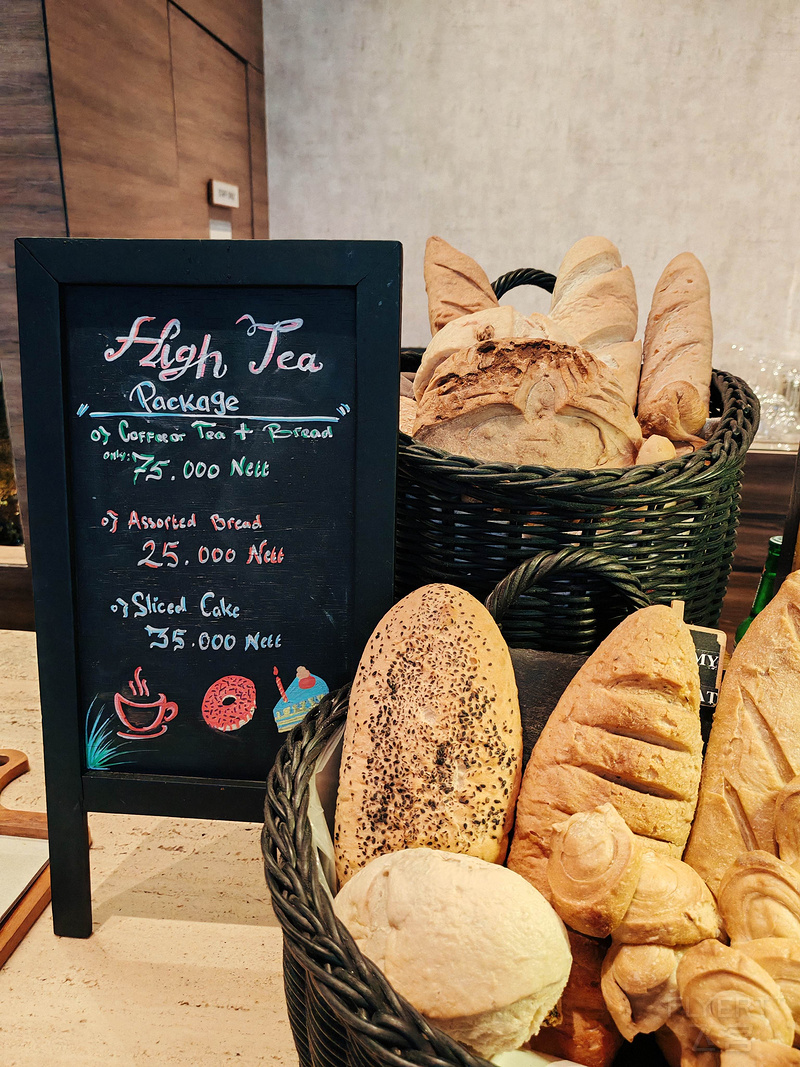 High Tea
Package
o) Coffee or Tea + Bread
only: 75.000 Nett
o) Assorted Bread
25.000 Nett
o) Sliced Cake
35.000 Nett
MY
AT